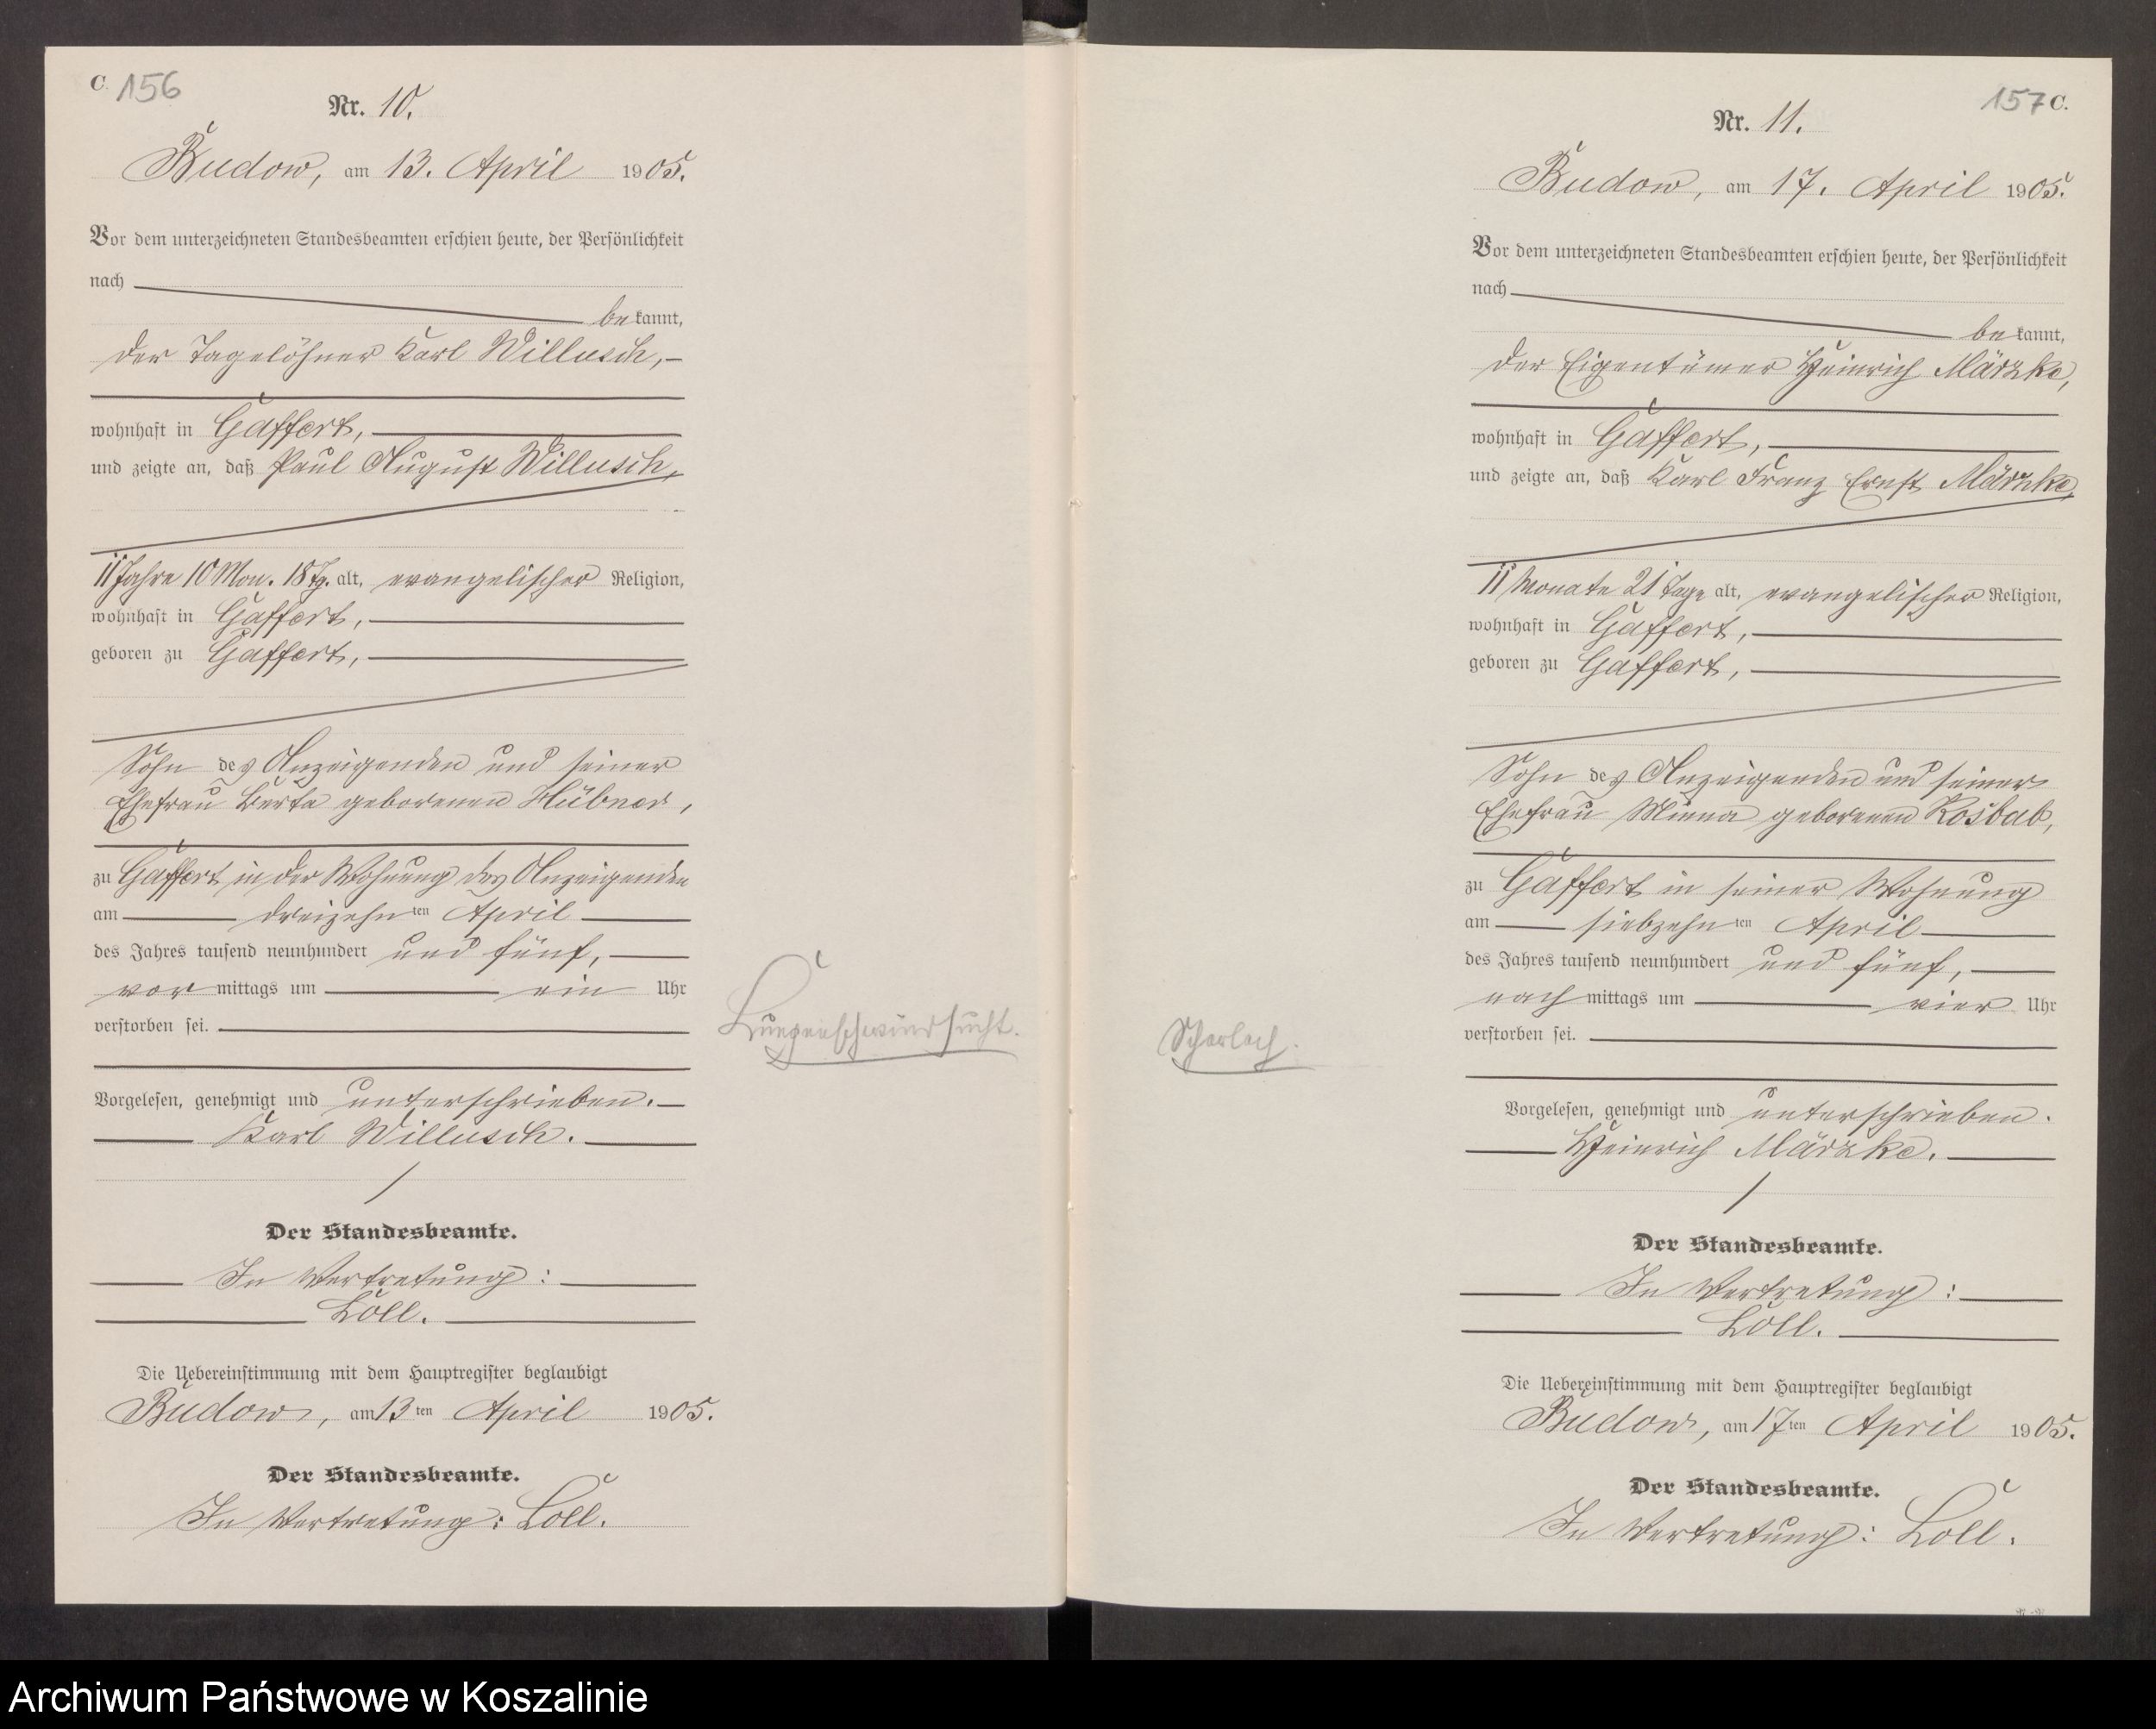 C. 156
Nr. 10.
Budow, am 13. April 1905.
Vor dem unterzeichneten Standesbeamten erschien heute, der Persönlichkeit
nach
bekannt,
der Tagelöhner Karl Willusch,
wohnhaft in Gaffert,
und zeigte an, daß Paul August Willusch,
11 Jahre 10 Mon. 18 Tg. alt, evangelischer Religion,
wohnhaft in Gaffert,
geboren zu Gaffert,
Sohn des Anzeigenden und seiner
Ehefrau Berta geborenen Hübner,
zu Gaffert in der Wohnung des Anzeigenden
am dreizehnten April
des Jahres tausend neunhundert und fünf,
vormittags um ein Uhr
verstorben sei.
Vorgelesen, genehmigt und unterschrieben.
Karl Willusch.
Der Standesbeamte.
In Vertretung:
Loll.
Die Uebereinstimmung mit dem Hauptregister beglaubigt
Budow, am 13ten April 1905.
Der Standesbeamte.
In Vertretung: Loll.
Lungenschwindsucht.
157 C.
Nr. 11.
Budow, am 17. April 1905.
Vor dem unterzeichneten Standesbeamten erschien heute, der Persönlichkeit
nach
bekannt,
der Eigentümer Heinrich Märzke,
wohnhaft in Gaffert,
und zeigte an, daß Karl Franz Ernst Märzke,
11 Monate 21 Tage alt, evangelischer Religion,
wohnhaft in Gaffert,
geboren zu Gaffert,
Sohn des Anzeigenden und seiner
Ehefrau Minna geborenen Kosbab,
zu Gaffert in seiner Wohnung
am siebzehnten April
des Jahres tausend neunhundert und fünf,
nachmittags um vier Uhr
verstorben sei.
Scharlach.
Vorgelesen, genehmigt und unterschrieben.
Heinrich Märzke.
Der Standesbeamte.
In Vertretung:
Loll.
Die Uebereinstimmung mit dem Hauptregister beglaubigt
Budow, am 17ten April 1905.
Der Standesbeamte.
In Vertretung: Loll.
Archiwum Państwowe w Koszalinie